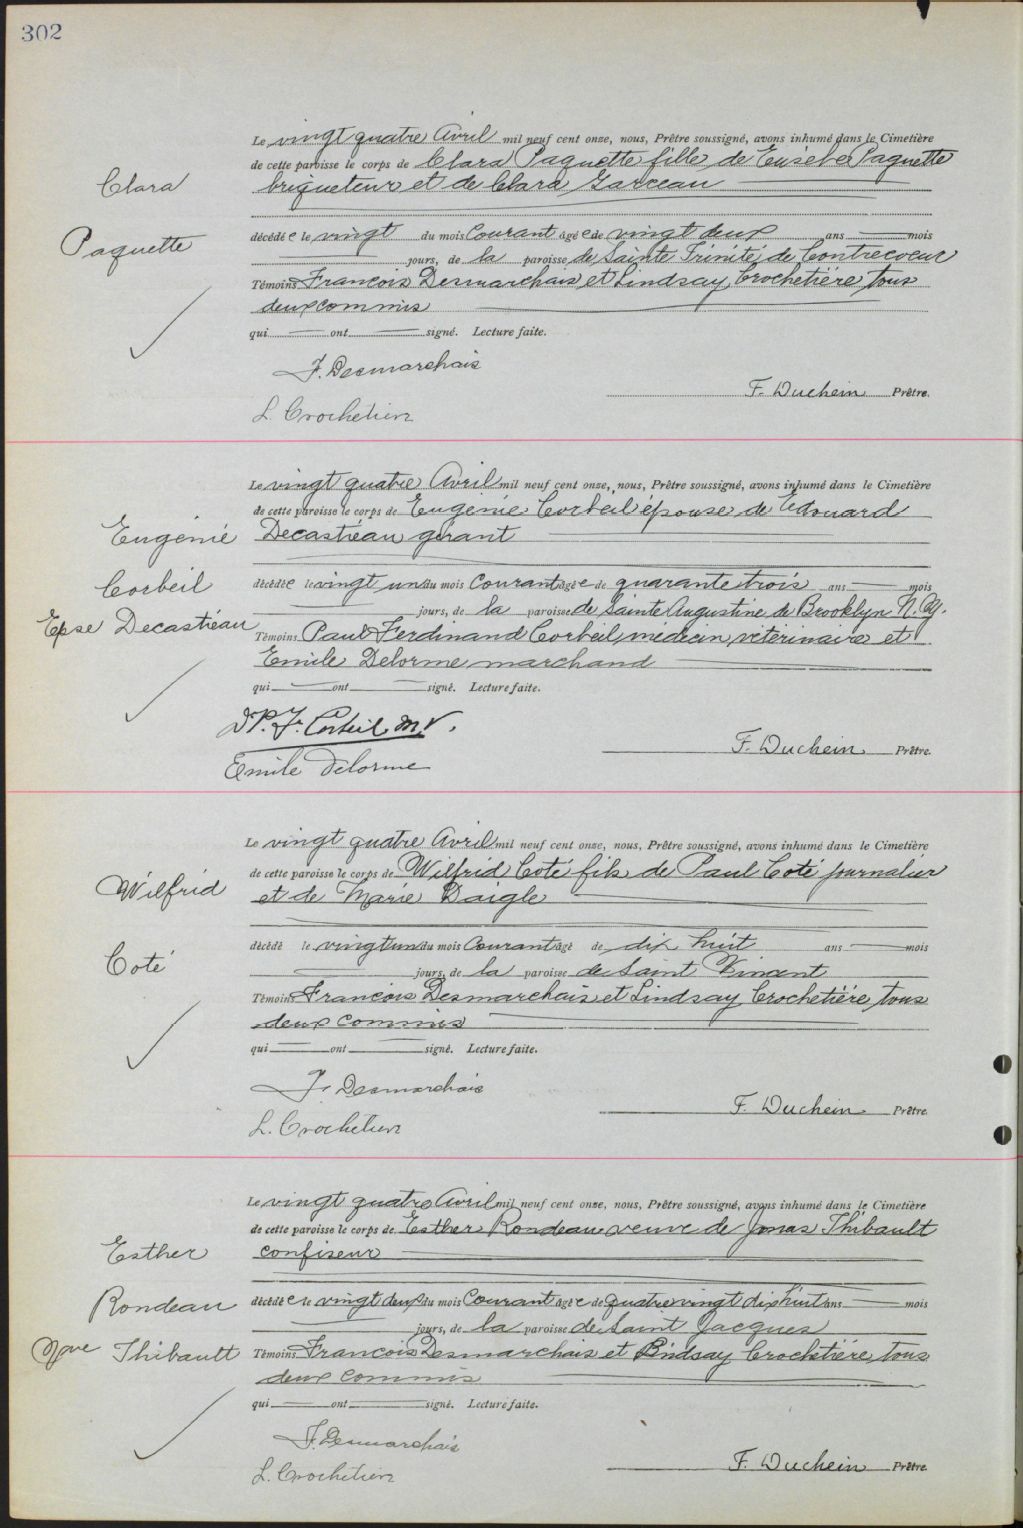 302
Le vingt quatre Avril mil neuf cent onze, nous, Prêtre soussigné, avons inhumé dans le Cimetière
de cette paroisse le corps de Clara Paquette fille de Eusèbe Paquette
Clara
briqueteur et de Clara Garceau
décédée le vingt du mois Courant âgée de vingt deux ans mois
Paquette
jours, de la paroisse de Sainte Trinité de Contrecoeur
Témoins François Desmarchais et Lindsay Crochetière tous
deux commis
qui ont signé. Lecture faite.
F. Desmarchais
F. Duchein Prêtre.
L. Crochetière
Le vingt quatre Avril mil neuf cent onze, nous, Prêtre soussigné, avons inhumé dans le Cimetière
de cette paroisse le corps de Eugénie Corbeil épouse de Edouard
Eugénie
Decastiéau gérant
Corbeil
décédée le vingt un du mois Courant âgée de quarante trois ans mois
jours, de la paroisse de Sainte Augustine de Brooklyn N.Y.
Epse Decastiéau
Témoins Paul Ferdinand Corbeil médecin vétérinaire et
Emile Delorme marchand
qui ont signé. Lecture faite.
Dr P. F. Corbeil m.v.
F. Duchein Prêtre.
Emile Delorme
Le vingt quatre Avril mil neuf cent onze, nous, Prêtre soussigné, avons inhumé dans le Cimetière
de cette paroisse le corps de Wilfrid Coté fils de Paul Coté journalier
Wilfrid
et de Marie Daigle
décédé le vingt un du mois Courant âgé de dix huit ans mois
Coté
jours, de la paroisse de Saint Vincent
Témoins François Desmarchais et Lindsay Crochetière tous
deux commis
qui ont signé. Lecture faite.
F. Desmarchais
F. Duchein Prêtre.
L. Crochetière
Le vingt quatre Avril mil neuf cent onze, nous, Prêtre soussigné, avons inhumé dans le Cimetière
de cette paroisse le corps de Esther Rondeau veuve de Jonas Thibault
Esther
confiseur
Rondeau
décédée le vingt deux du mois Courant âgée de quatre vingt dix huit ans mois
jours, de la paroisse de Saint Jacques
Vve Thibault
Témoins François Desmarchais et Lindsay Crochetière tous
deux commis
qui ont signé. Lecture faite.
F. Desmarchais
F. Duchein Prêtre.
L. Crochetière